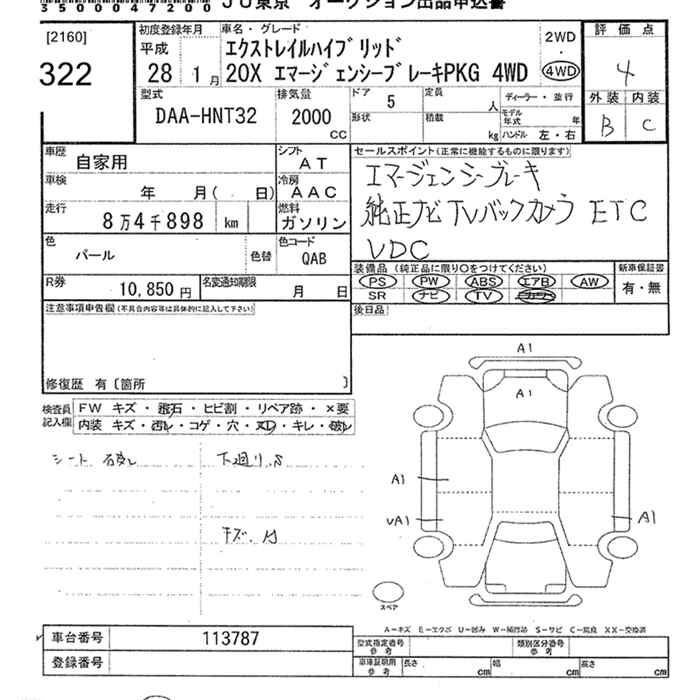 3500047200 JU東京 オークション出品申込書
[2160]
322
初度登録年月
平成
28 1月
車名・グレード
エクストレイルハイブリッド
20X エマージェンシーブレーキPKG 4WD
2WD
・
4WD
評価点
4
外装 内装
B C
型式
DAA-HNT32
排気量
2000
CC
ドア 5
定員 人
形状
積載 kg
ディーラー・並行
モデル年式 年
ハンドル 左・右
車歴 自家用
シフト AT
車検 年 月( 日)
冷房 AAC
走行 8万4千898 km
燃料 ガソリン
色 パール 色替
色コード QAB
R券 10,850円
名変通知期限 月 日
セールスポイント(正常に機能するものに限ります)
エマージェンシーブレーキ
純正ナビ TVバックカメラ ETC
VDC
装備品 (純正品に限り○をつけてください)
PS PW ABS エアB AW
SR ナビ TV
新車保証書
有・無
後日品
注意事項申告欄(不具合内容等は具体的に記入して下さい)
修復歴 有〔箇所 〕
検査員記入欄
FW キズ・飛石・ヒビ割・リペア跡・×要
内装 キズ・汚レ・コゲ・穴・ヌリ・キレ・破レ
シート 破レ
下廻り.S
キズ.
A1
A1
A1
vA1
A1
スペア
A－キズ E－エクボ U－凹み W－補修跡 S－サビ C－腐食 XX－交換済
車台番号 113787
登録番号
型式指定番号 参考
類別区分番号 参考
車庫証明用 参考
長さ cm 幅 cm 高さ cm